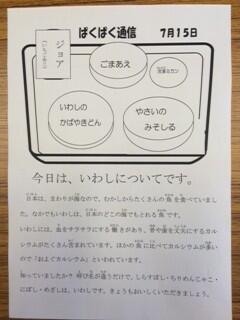 ぱくぱく通信　７月１５日
ジョア
ごまあえ
冷凍ミカン
いわしの
かばやきどん
やさいの
みそしる
今日は、いわしについてです。
日本は、まわりが海なので、むかしからたくさんの魚を食べていまし
た。なかでもいわしは、日本のどこの海でもとれる魚です。
いわしには、血をサラサラにする働きがあり、骨や歯を丈夫にするカル
シウムがたくさん含まれています。ほかの魚に比べてカルシウムが多い
ので「およぐカルシウム」といわれています。
知っていましたか？呼び名が違うだけで、しらすぼし・ちりめんじゃこ・
にぼし・めざしは、いわしです。きょうもおいしくいただきましょう。